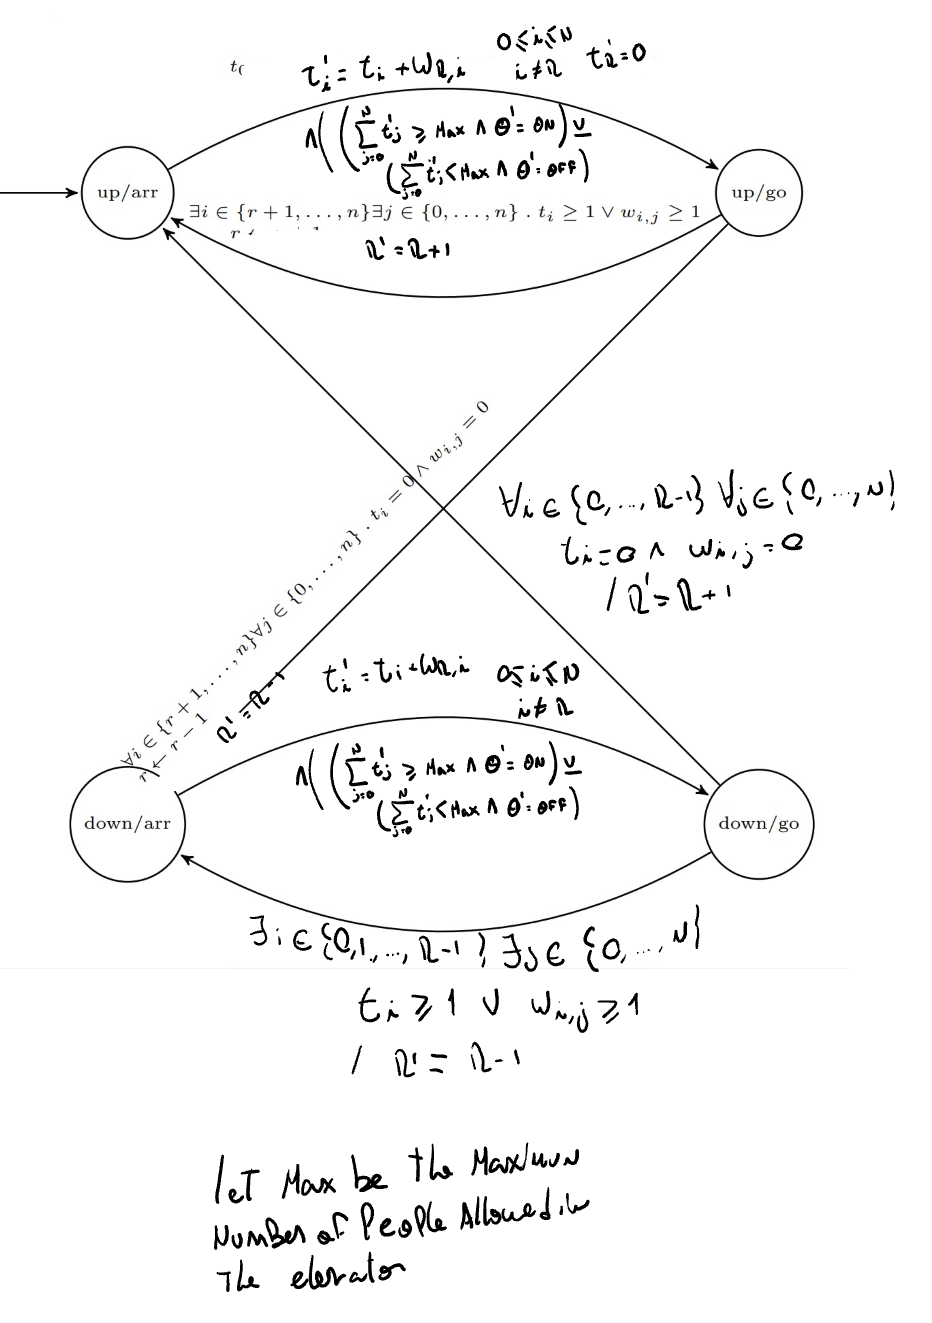 t'ᵢ = tᵢ + w_R,i 0≤i≤N t'_R=0
i≠R
∧((∑_{j=0}^{N} t'ⱼ ≥ Max ∧ Θ'=ON) ⊻
(∑_{j=0}^{N} t'ⱼ < Max ∧ Θ'=OFF)
up/arr
up/go
∃i ∈ {r + 1, . . . , n}∃j ∈ {0, . . . , n} . tᵢ ≥ 1 ∨ wᵢ,ⱼ ≥ 1
R' = R+1
∀i ∈ {r + 1, . . . , n}∀j ∈ {0, . . . , n} . tᵢ = 0 ∧ wᵢ,ⱼ = 0
r ← r − 1
R' = R-1
∀i ∈ {0, ..., R-1} ∀j ∈ {0, ..., N}
tᵢ=0 ∧ wᵢ,ⱼ=0
/ R' = R+1
t'ᵢ = tᵢ + w_R,i 0≤i≤N
i≠R
∧((∑_{j=0}^{N} t'ⱼ ≥ Max ∧ Θ'=ON) ⊻
(∑_{j=0}^{N} t'ⱼ < Max ∧ Θ'=OFF)
down/arr
down/go
∃i ∈ {0,1,..., R-1} ∃j ∈ {0, ..., N}
tᵢ ≥ 1 ∨ wᵢ,ⱼ ≥ 1
/ R' = R-1
let Max be the Maximum
Number of People Allowed in
The elevator